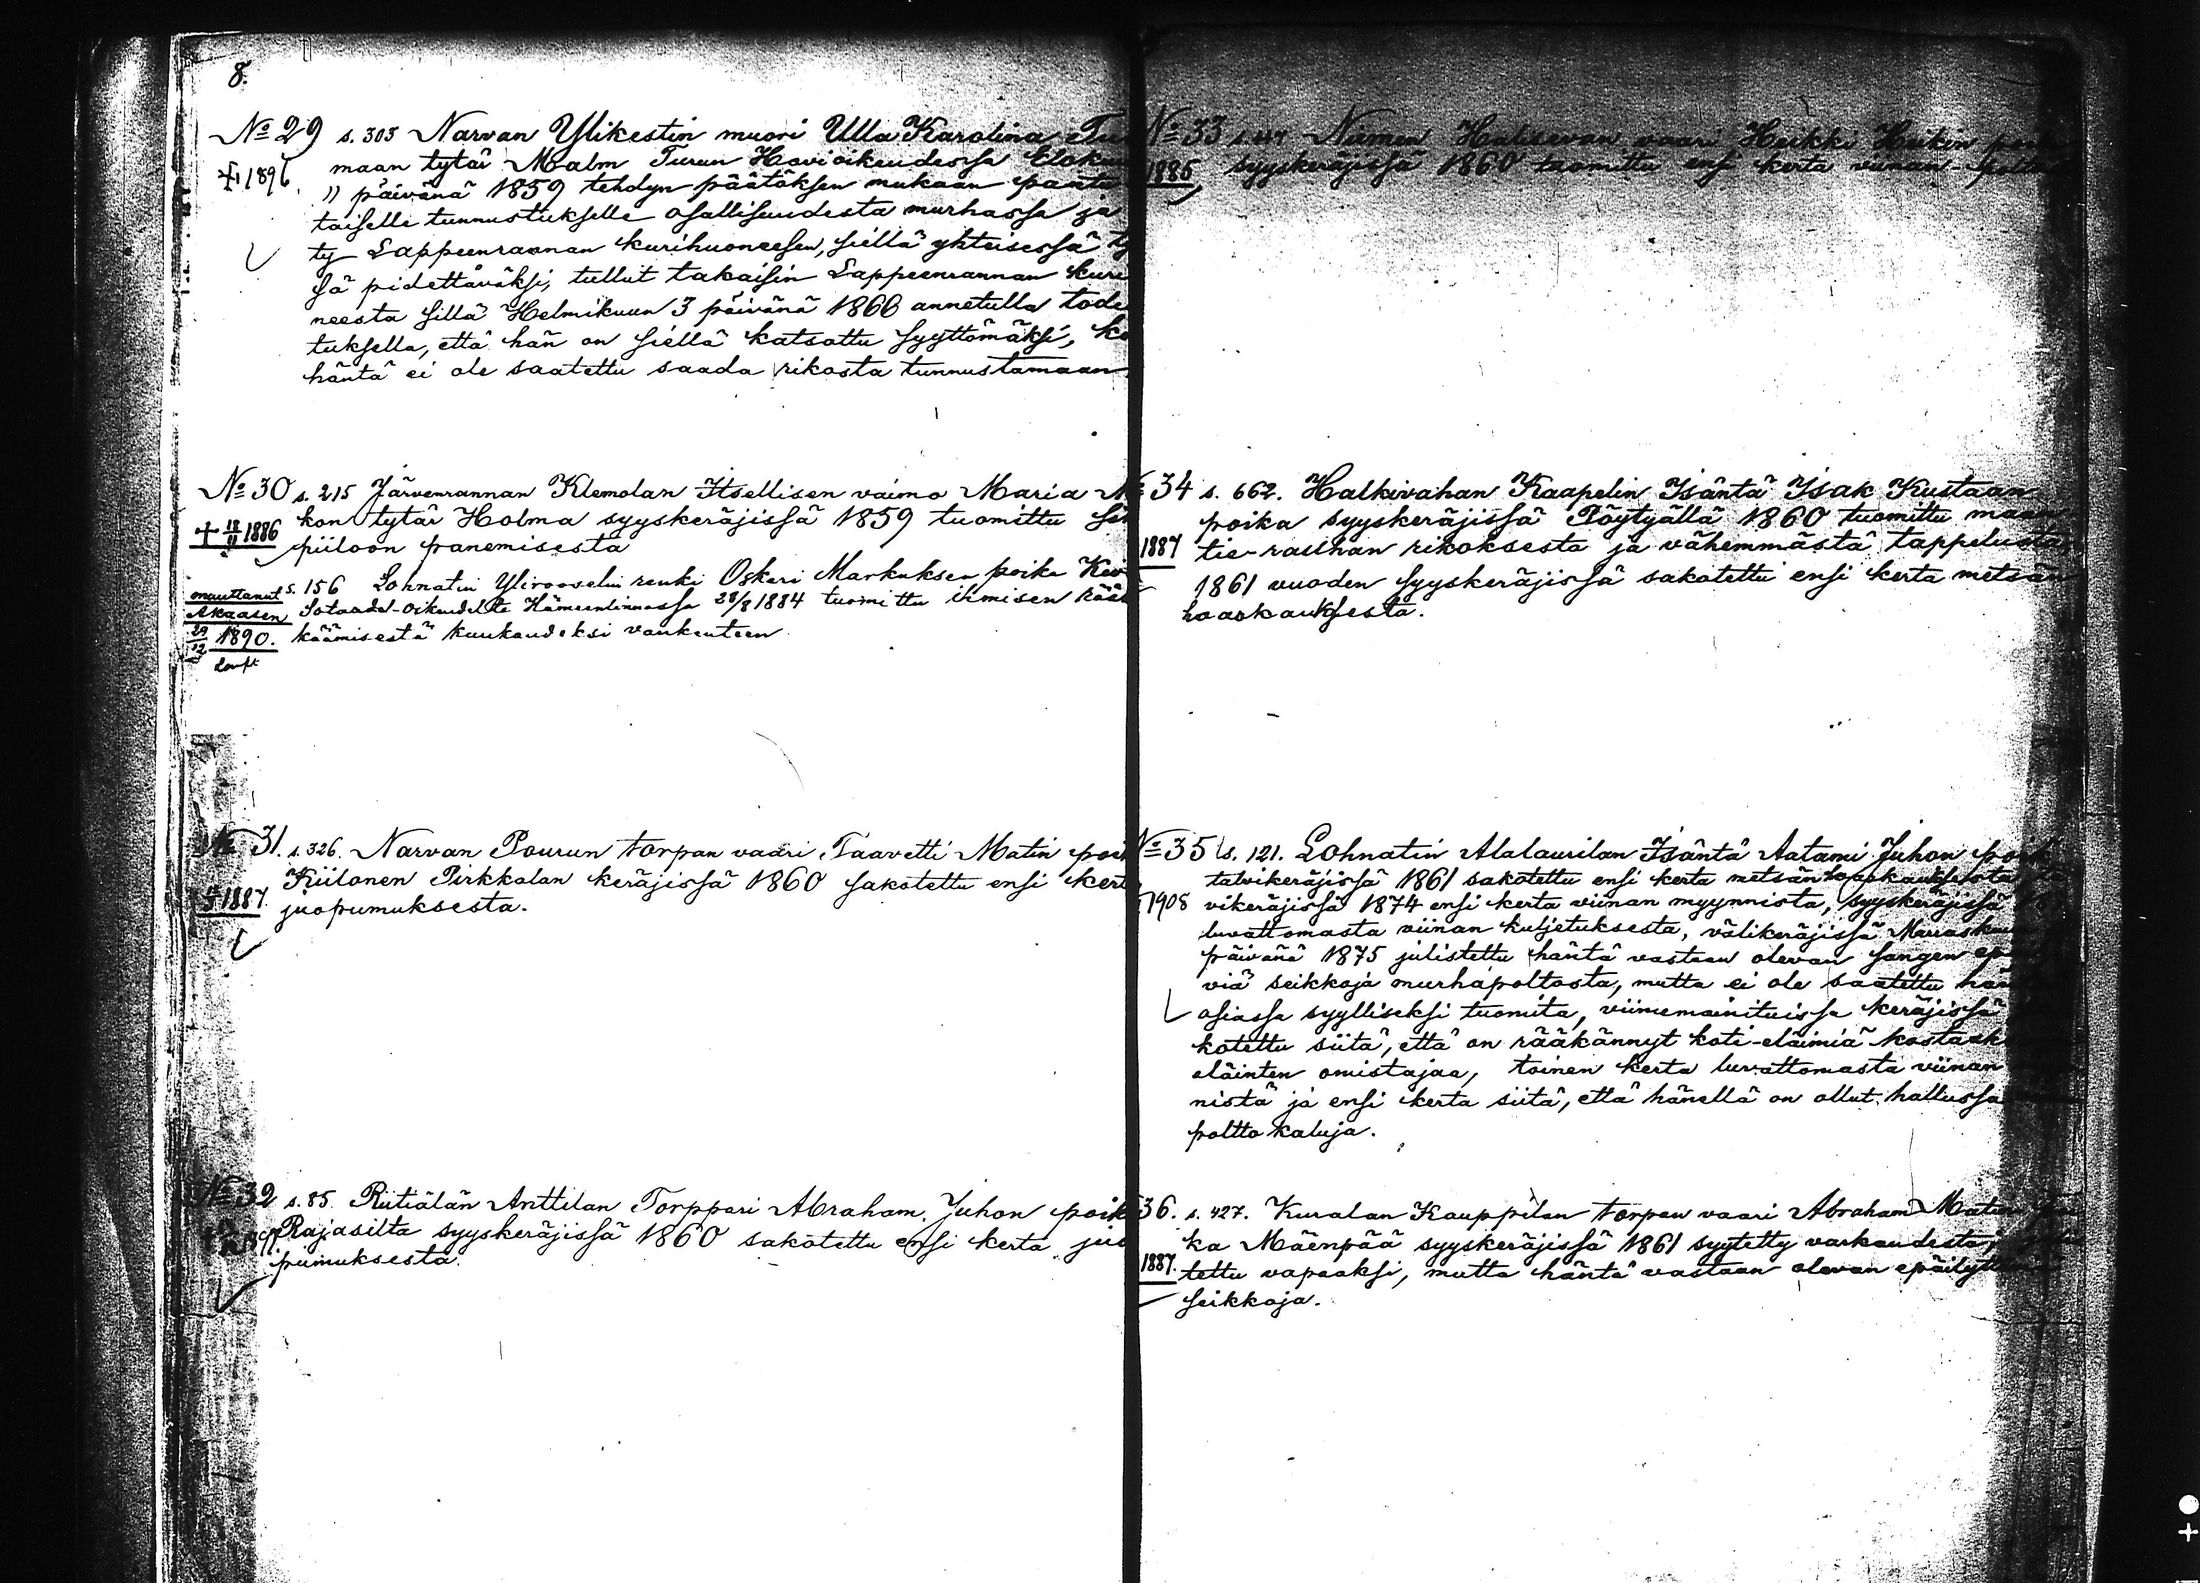 8.
№ 29 s. 303 Narvan Ylikestin muori Ulla Karolina
maan tytär Malm Turun Hovioikeudessa Eloku
1896
" päivänä 1859 tehdyn päätöksen mukaan pantu
taiselle tunnustukselle osallisuudesta murhassa ja
ty Lappeenrannan kurihuoneesen, siellä yhteisessä ty
sä pidettäväksi, tullut takaisin Lappeenrannan kuri
neesta sillä Helmikuun 3 päivänä 1866 annetulla tode
tuksella, että hän on siellä katsottu syyttömäksi, ko
häntä ei ole saatettu saada rikosta tunnustamaan
№ 30 s. 215 Järvenrannan Klemolan Itsellisen vaimo Maria
kon tytär Holma syyskeräjissä 1859 tuomittu
+ 18/11 1886
piiloon panemisesta
s. 156 Lohnatin Ylirooselin renki Oskari Markuksen poika
muuttanut Akaasen 29/12 1890.
Sotaade-oikeudelta Hämeenlinnassa 28/8 1884 tuomittu ihmisen rää
käämisestä kuukaudeksi vankeuteen
№ 31. s. 326. Narvan Pourun torpan vaari Taavetti Matin poik
Kiilonen Pirkkalan keräjissä 1860 sakotettu ensi kert
1887.
juopumuksesta.
№ 32 s. 85. Rutiälän Anttilan Torppari Abraham Juhon poik
Rajasilta syyskeräjissä 1860 sakotettu ensi kerta juo
pumuksesta.
№ 33 Heikki Heikin
1885 syyskeräjissä 1860 tuomittu ensi kerta viinan-poltos
34 s. 662. Halkivahan Kaapelin Isäntä Isak Kustaan
poika syyskeräjissä Pöytyällä 1860 tuomittu maan
1887 tie-rauhan rikoksesta ja vähemmästä tappelusta,
1861 vuoden syyskeräjissä sakotettu ensi kerta metsän
haaskauksesta.
№ 35 s. 121. Lohnatin Alalaurilan Isäntä Aatami Juhon poik
talvikeräjissä 1861 sakotettu ensi kerta metsän haaskauksesta
1908 vikeräjissä 1874 ensi kerta viinan myynnistä, syyskeräjissä
luvattomasta viinan kuljetuksesta, välikeräjissä Marrasku
päivänä 1875 julistettu häntä vastaan olevan sangen epä
viä seikkoja murhapoltosta, mutta ei ole saatettu hän
asiassa syylliseksi tuomita, viimemainituissa keräjissä
kotettu siitä, että on rääkännyt koti-eläimiä kostaak
eläinten omistajaa, toinen kerta luvattomasta viinan
nistä ja ensi kerta siitä, että hänellä on ollut hallussa
poltto kaluja.
36. s. 427. Kuralan Kauppilan torpan vaari Abraham Matin
ka Mäenpää syyskeräjissä 1861 syytetty varkaudesta,
1887. tettu vapaaksi, mutta häntä vastaan olevan epäilyt
seikkoja.